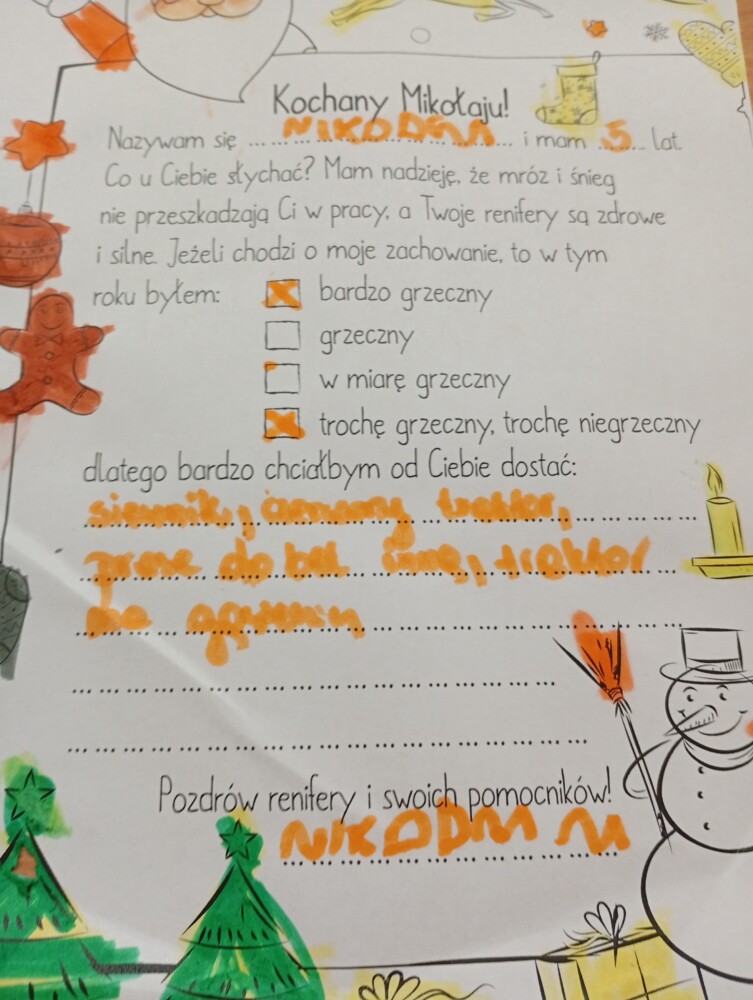 Kochany Mikołaju!
Nazywam się NIKODM i mam 5 lat.
Co u Ciebie słychać? Mam nadzieję, że mróz i śnieg
nie przeszkadzają Ci w pracy, a Twoje renifery są zdrowe
i silne. Jeżeli chodzi o moje zachowanie, to w tym
roku byłem:
bardzo grzeczny
grzeczny
w miarę grzeczny
trochę grzeczny, trochę niegrzeczny
dlatego bardzo chciałbym od Ciebie dostać:
siewnik, traktor,
do bel traktor
na
Pozdrów renifery i swoich pomocników!
NIKODM M